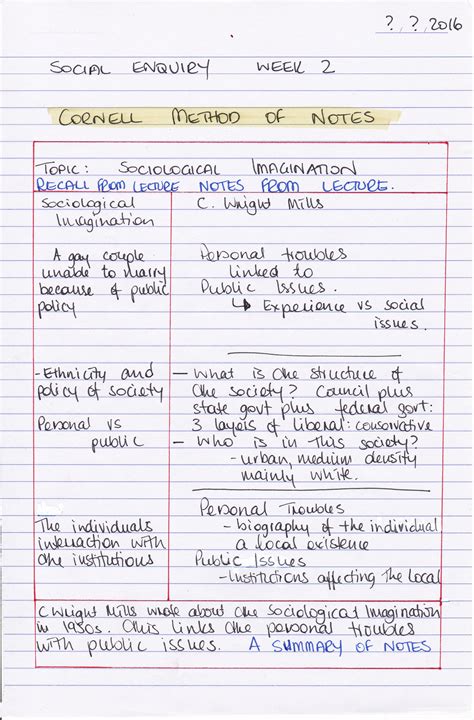 ?, ?, 2016
SOCIAL ENQUIRY WEEK 2
CORNELL METHOD OF NOTES
TOPIC: SOCIOLOGICAL IMAGINATION
RECALL FROM LECTURE NOTES FROM LECTURE.
Sociological
Imagination
A gay couple
unable to marry
because of public
policy
- Ethnicity and
policy of society
Personal vs
public
The individuals
interaction with
the institutions
C. Wright Mills
Personal troubles
linked to
Public Issues.
↳ Experience vs social
issues.
- What is the structure of
the society? Council plus
state govt plus federal govt:
3 layers of liberal: conservative
- Who is in this society?
- urban, medium density
mainly white.
Personal Troubles
- biography of the individual
a local existence
Public Issues
- Institutions affecting the local
C Wright Mills wrote about the Sociological Imagination
in 1950s. This links the personal troubles
with public issues. A SUMMARY OF NOTES